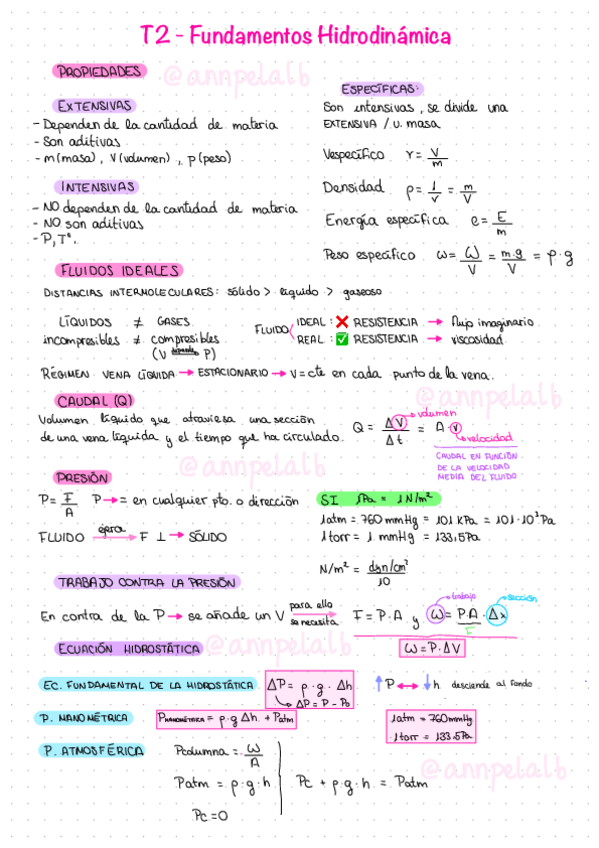 T2 - Fundamentos Hidrodinámica
PROPIEDADES
@annpelalb
EXTENSIVAS
- Dependen de la cantidad de materia
- Son aditivas
- m (masa), V (volumen), p (peso)
INTENSIVAS
- NO dependen de la cantidad de materia
- NO son aditivas
- P, Tª.
ESPECÍFICAS:
Son intensivas, se divide una
EXTENSIVA / u. masa
Vespecífico v = V / m
Densidad ρ = 1 / v = m / V
Energía específica e = E / m
Peso específico ω = ω / V = m·g / V = ρ·g
FLUIDOS IDEALES
DISTANCIAS INTERMOLECULARES: sólido > líquido > gaseoso
LÍQUIDOS ≠ GASES
incompresibles ≠ compresibles
(V depende P)
FLUIDO
IDEAL: ❌ RESISTENCIA → flujo imaginario
REAL: ✅ RESISTENCIA → viscosidad
RÉGIMEN VENA LÍQUIDA → ESTACIONARIO → V = cte en cada punto de la vena.
@annpelalb
CAUDAL (Q)
Volumen líquido que atraviesa una sección
de una vena líquida y el tiempo que ha circulado.
Q = ΔV / Δt = A·v
volumen
velocidad
CAUDAL EN FUNCIÓN
DE LA VELOCIDAD
MEDIA DEL FLUIDO
@annpelalb
PRESIÓN
P = F / A P → = en cualquier pto. o dirección
FLUIDO ejerce → F ⊥ → SÓLIDO
SI 1Pa = 1N/m²
1atm = 760 mmHg = 101 kPa = 101·10³ Pa
1 torr = 1 mmHg = 133,5Pa
N/m² = dyn/cm² / 10
TRABAJO CONTRA LA PRESIÓN
En contra de la P → se añade un V para ello se necesita F = P·A y ω = P·A·Δx
trabajo
sección
F
ω = P·ΔV
ECUACIÓN HIDROSTÁTICA
@annpelalb
EC. FUNDAMENTAL DE LA HIDROSTÁTICA ΔP = ρ·g·Δh
ΔP = P - P₀
↑P ↔ ↓h desciende al fondo
P. MANOMÉTRICA PMANOMÉTRICA = ρ·g Δh + Patm
1atm = 760mmHg
1 torr = 133.5Pa
P. ATMOSFÉRICA Pcolumna = ω / A
Patm = ρ·g·h
Pc = 0
Pc + ρ·g·h = Patm
@annpelalb